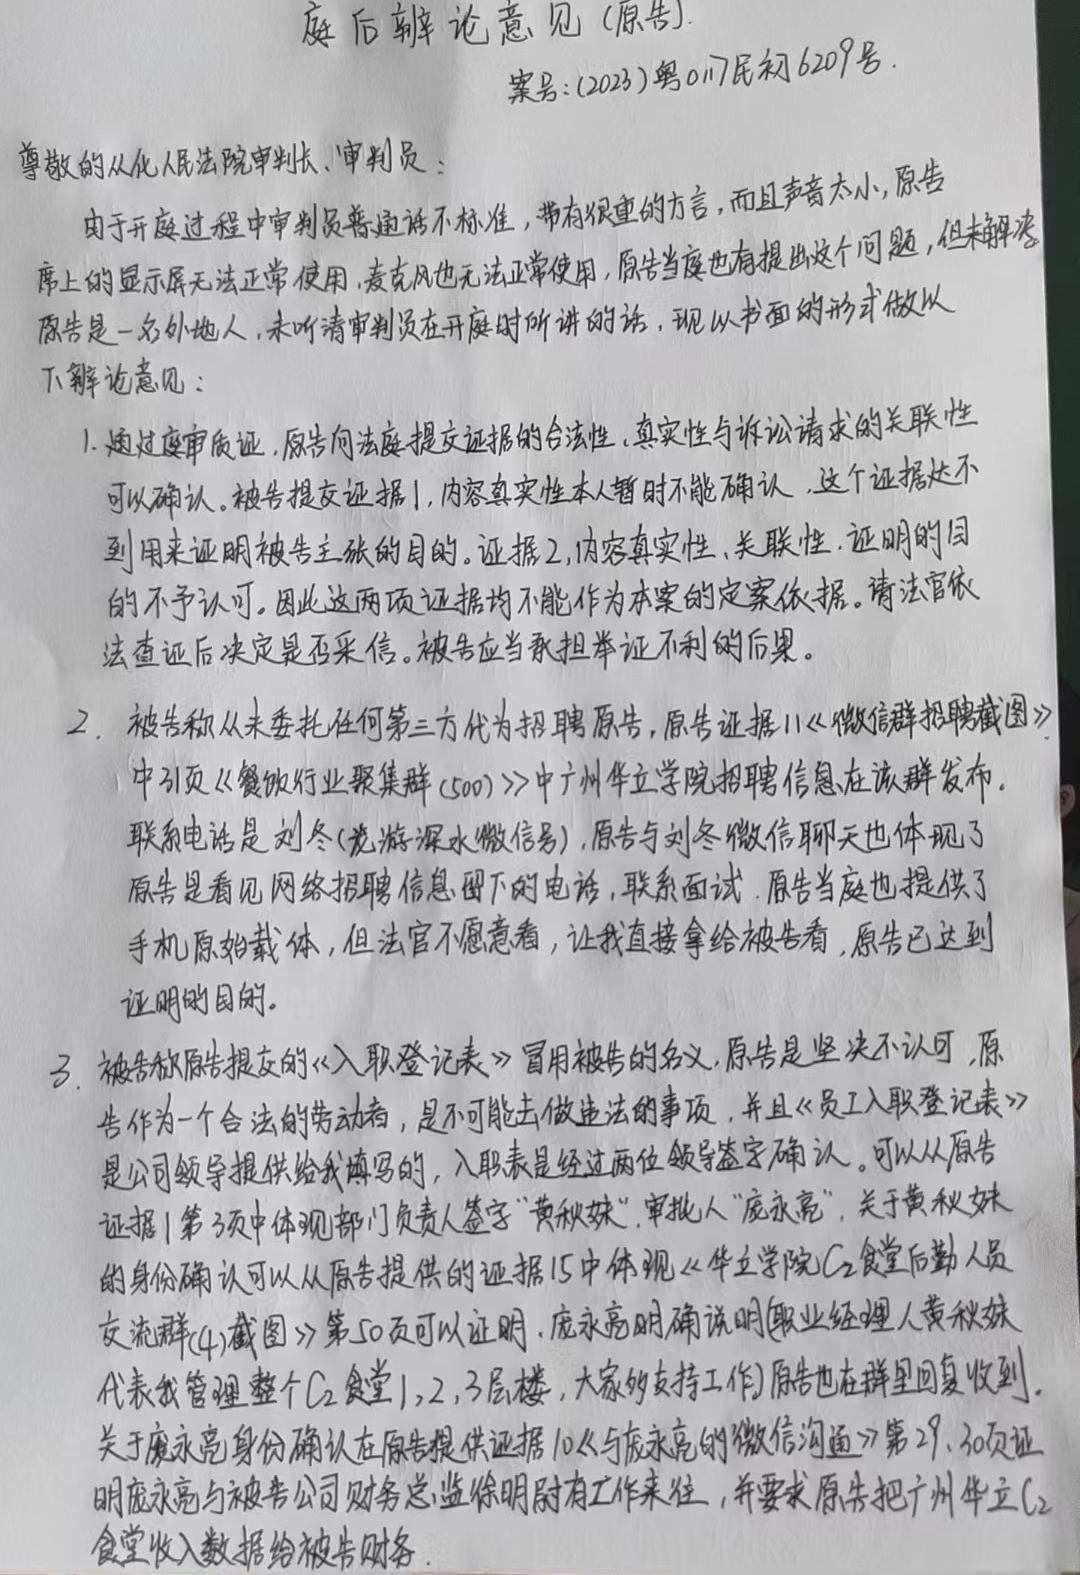 庭后辩论意见(原告).
案号:(2023)粤0117民初6209号.
尊敬的从化人民法院审判长、审判员:
由于开庭过程中审判员普通话不标准,带有很重的方言,而且声音太小,原告
席上的显示屏无法正常使用,麦克风也无法正常使用,原告当庭也有提出这个问题,但未解决
原告是一名外地人,未听清审判员在开庭时所讲的话,现以书面的形式做以
下辩论意见:
1.通过庭审质证,原告向法庭提交证据的合法性、真实性与诉讼请求的关联性
可以确认。被告提交证据1,内容真实性本人暂时不能确认,这个证据达不
到用来证明被告主张的目的。证据2,内容真实性、关联性、证明的目
的不予认可。因此这两项证据均不能作为本案的定案依据。请法官依
法查证后决定是否采信。被告应当承担举证不利的后果。
2.被告称从未委托任何第三方代为招聘原告,原告证据11《微信群招聘截图》
中31页《餐饮行业聚集群(500)》中广州华立学院招聘信息在该群发布.
联系电话是刘冬(龙游深水微信号),原告与刘冬微信聊天也体现了
原告是看见网络招聘信息留下的电话,联系面试.原告当庭也提供了
手机原始载体,但法官不愿意看,让我直接拿给被告看,原告已达到
证明的目的。
3.被告称原告提交的《入职登记表》冒用被告的名义,原告是坚决不认可,原
告作为一个合法的劳动者,是不可能去做违法的事项,并且《员工入职登记表》
是公司领导提供给我填写的,入职表是经过两位领导签字确认。可以从原告
证据1第3项中体现部门负责人签字“黄秋妹”.审批人“庞永亮”.关于黄秋妹
的身份确认可以从原告提供的证据15中体现《华立学院C2食堂后勤人员
交流群(4)截图》第50页可以证明.庞永亮明确说明(职业经理人黄秋妹
代表我管理整个C2食堂1,2,3层楼,大家多支持工作)原告也在群里回复收到.
关于庞永亮身份确认在原告提供证据10《与庞永亮的微信沟通》第29、30页证
明庞永亮与被告公司财务总监徐明尉有工作来往,并要求原告把广州华立C2
食堂收入数据给被告财务.